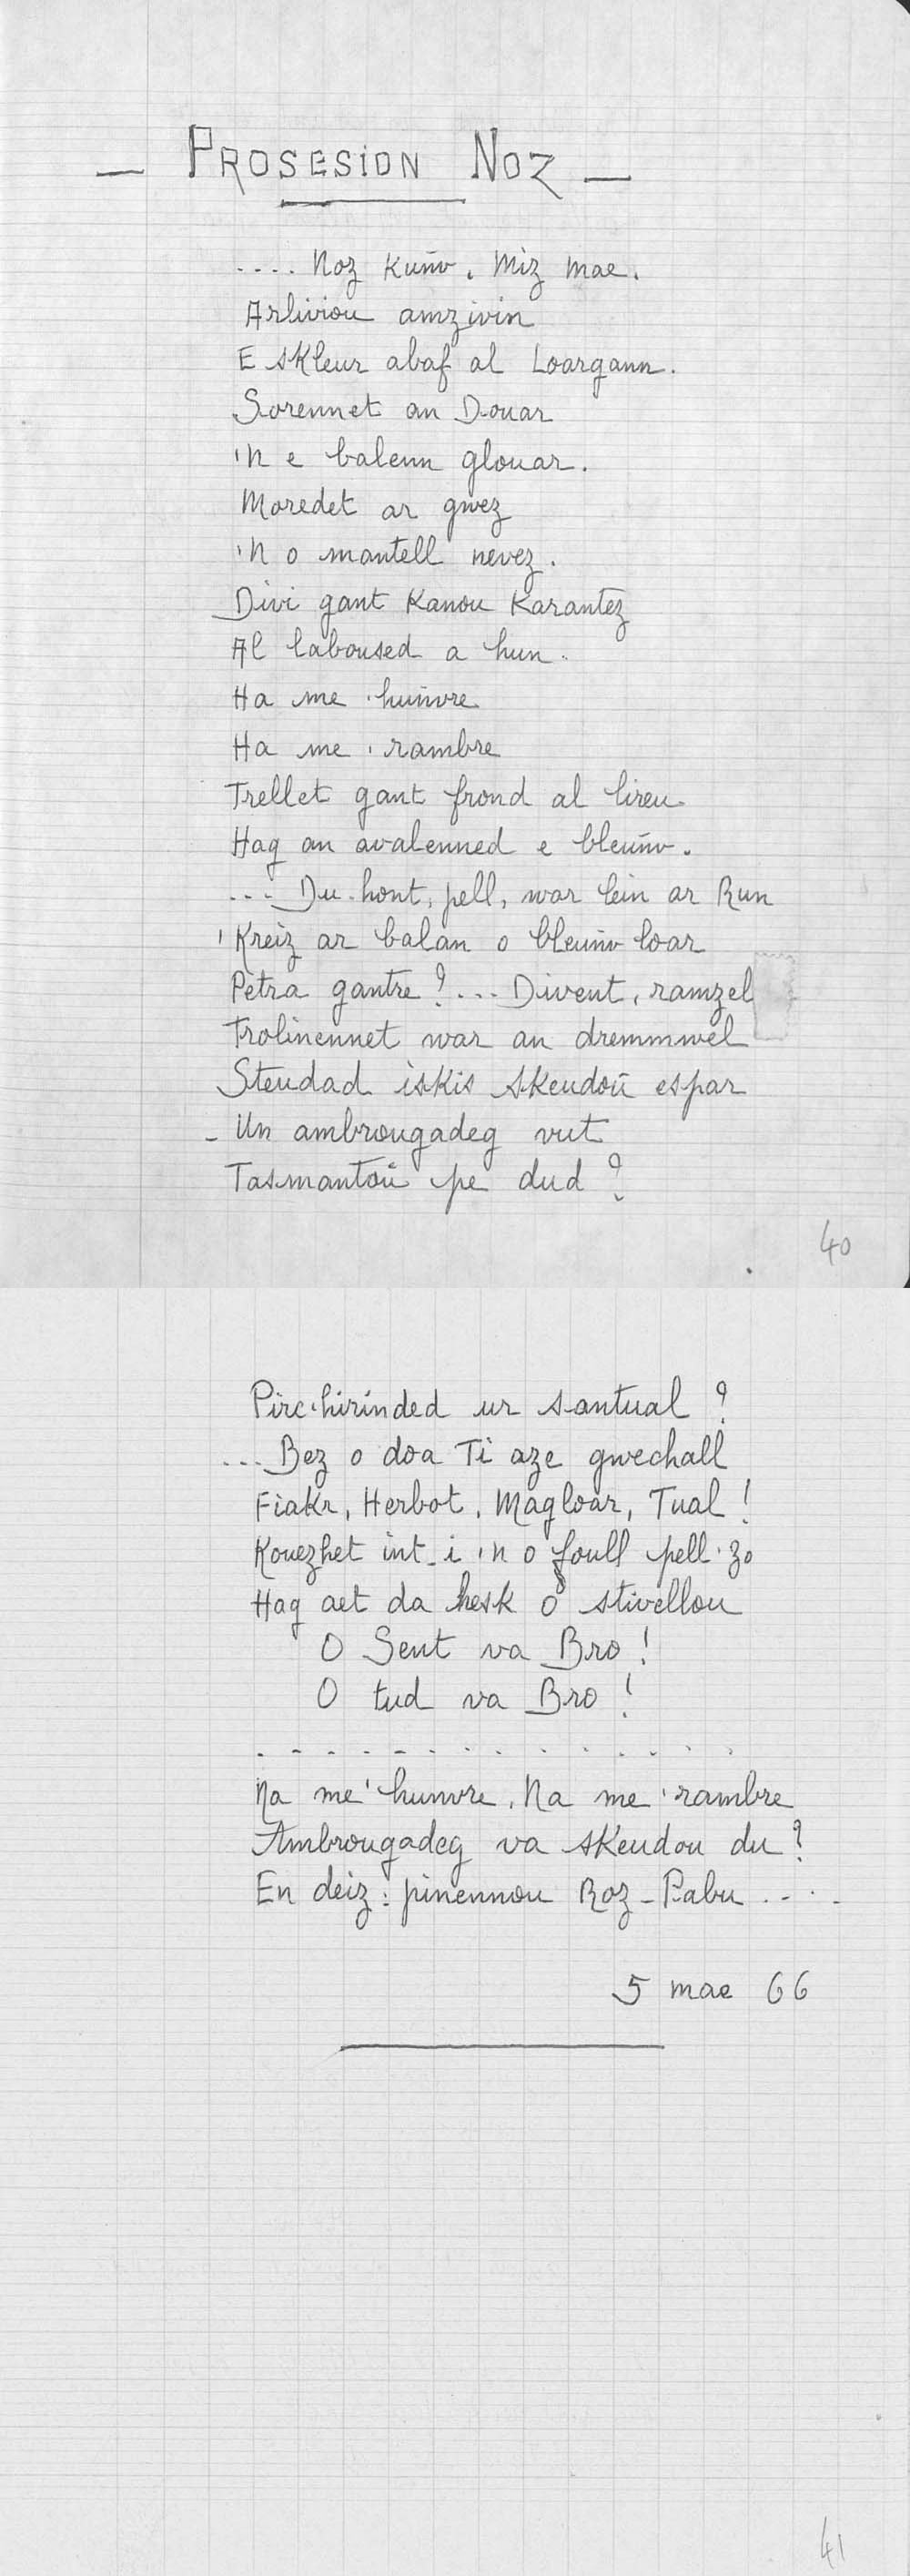 — PROSESION NOZ —
.... Noz Kuñv. Miz mae.
Arliviou amzivin
E skleur abaf al Loargann.
Sorennet an Douar
'N e balenn glouar.
Moredet ar gwez
'N o mantell nevez.
Divi gant Kanou Karantez
Al laboused a hun.
Ha me 'huñvre
Ha me 'rambre
Trellet gant frond al lireu
Hag an avalenned e bleuñv.
... Du-hont, pell, war lein ar Run
'Kreiz ar balan o bleuñv loar
Petra gantre ? ... Divent, ramzel
Trolinennet war an dremmwel
Steudad iskis skeudoù espar
- Un ambrougadeg vut
Tasmantoù pe dud ?
40
Pirc'hirinded ur santual ?
... Bez o doa Ti aze gwechall
Fiakr, Herbot, Magloar, Tual !
Kouezhet int-i 'n o foull pell 'zo
Hag aet da hesk o stivellou
O Sent va Bro !
O tud va Bro !
. . . . . . . . . . . . . .
Na me 'hunvre, Na me 'rambre
Ambrougadeg va skeudou du ?
En deiz : pinennou Roz-Pabu ....
5 mae 66
41